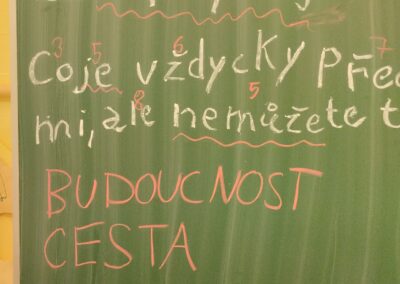 Co je vždycky Před
mi, ale nemůžete t
BUDOUCNOST
CESTA